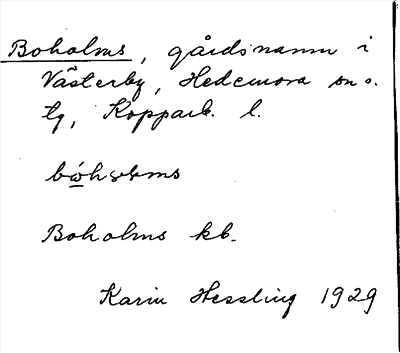 Boholms, gårdsnamn i
Västerby, Hedemora sn o.
tg, Kopparb. l.
Boholms kb.
Karin Hessling 1929